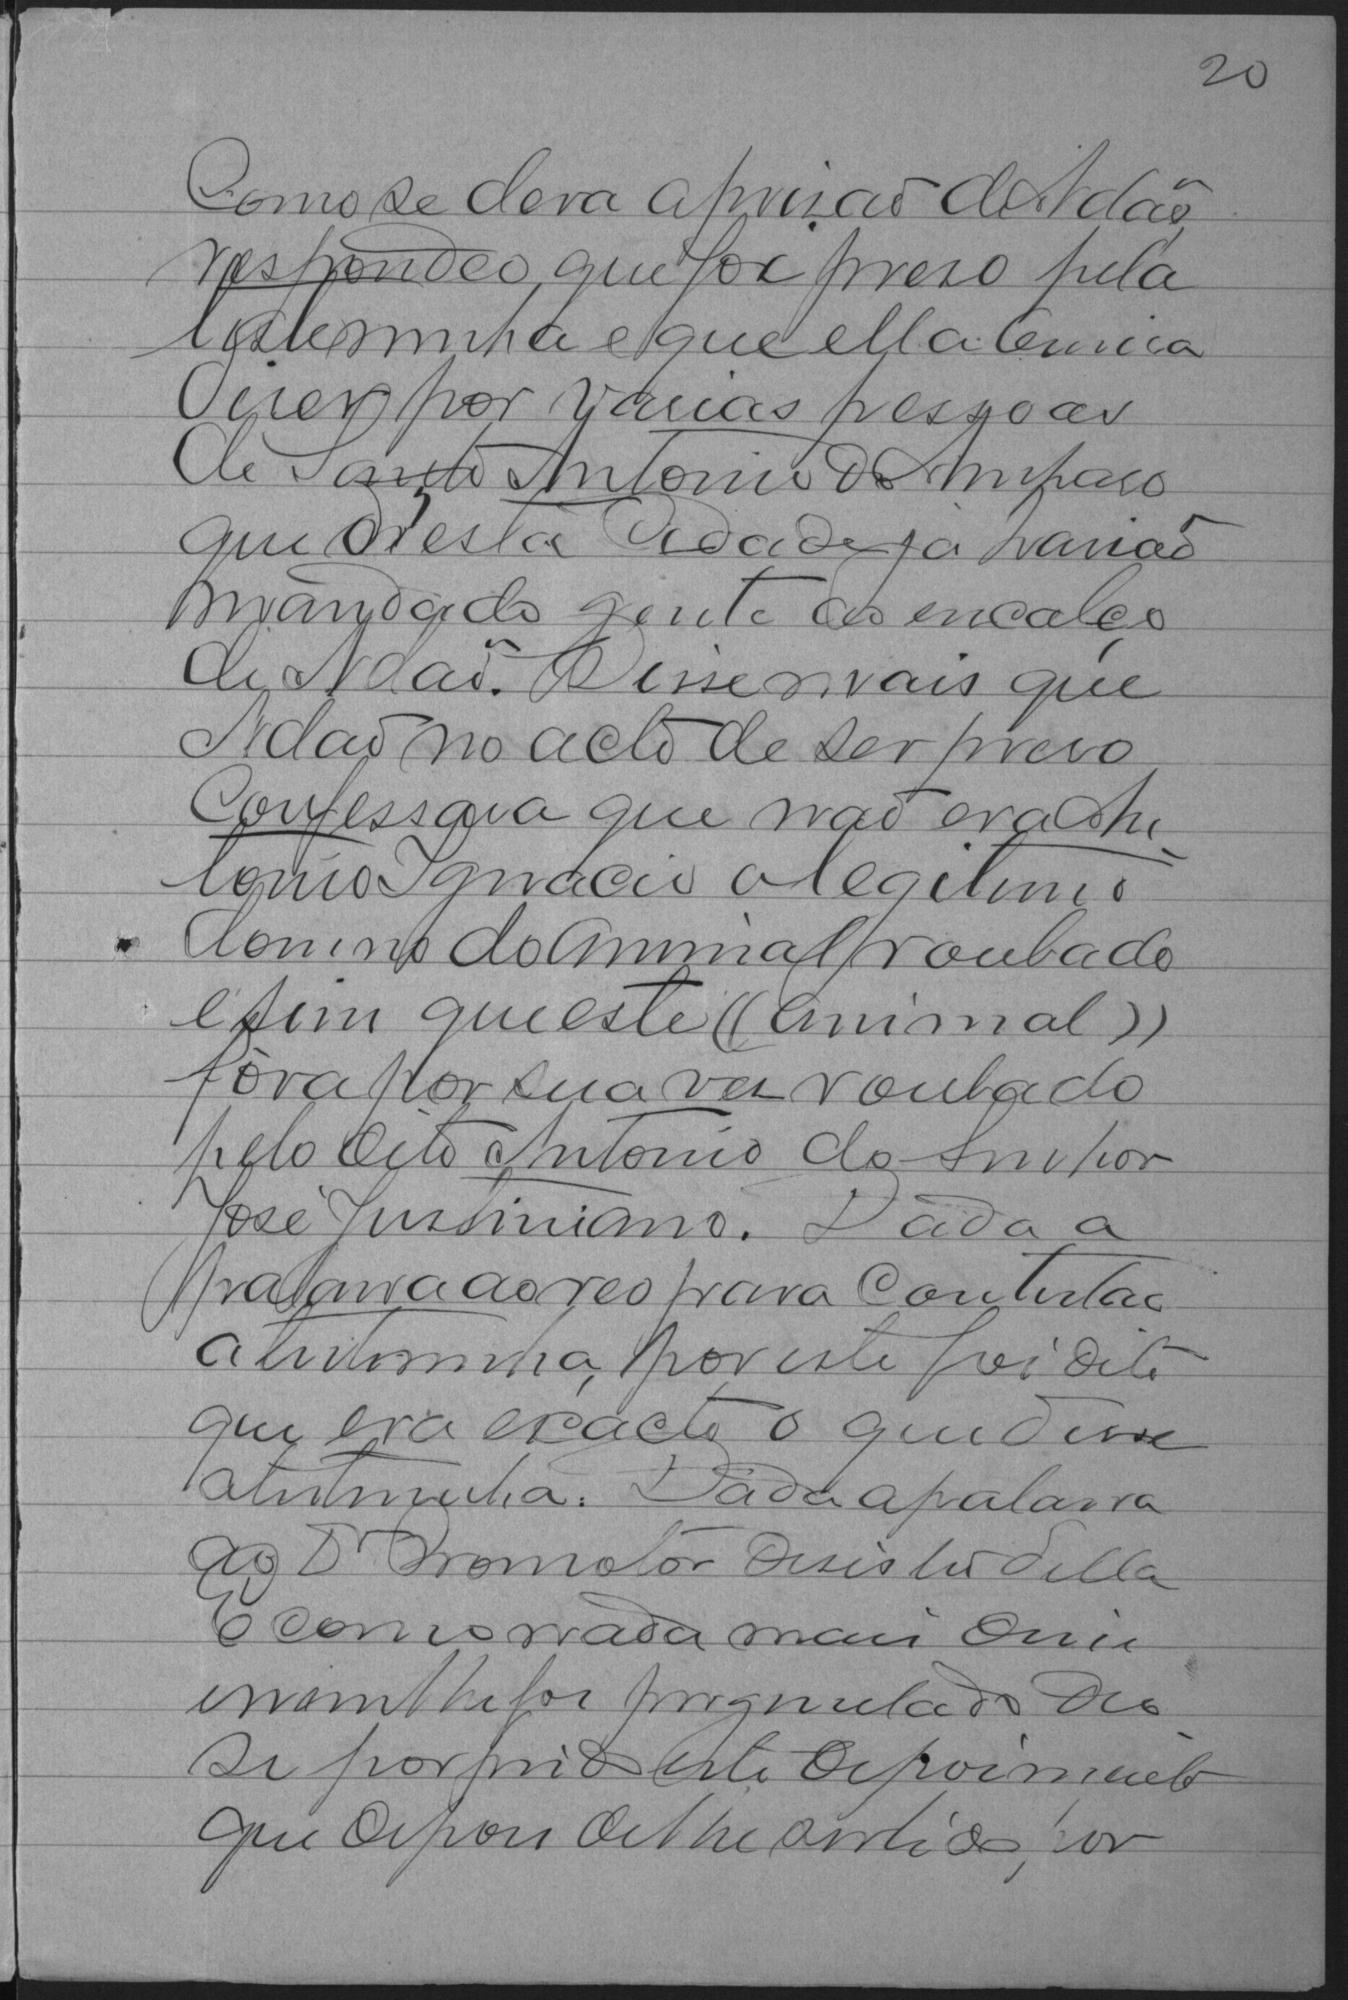 20
Como se dera a prisão de Adão,
respondeo que foi preso pela
testemunha e que ella ouvira
diser por varias pessoas
de Santo Antonio do Amparo
que d'esta Cidade já havião
mandado gente ao encalço
de Adão. Disse mais que
Adão no acto de ser preso
Confessava que não era An-
tonio Ignacio o legitimo
dono do animal roubado
e sim que este ((animal))
fôra por sua vez roubado
pelo dito Antonio do Senhor
José Justiniano. Dada a
palavra ao reo para Contestar
a testemunha, por este foi dito
que era exacto o que disse
a testemunha. Dada a palavra
ao Dr Promotor desistio della
E como nada mais disse
nem lhe foi perguntado deo
se por findo este depoimento
que depois de lhe ser lido, por